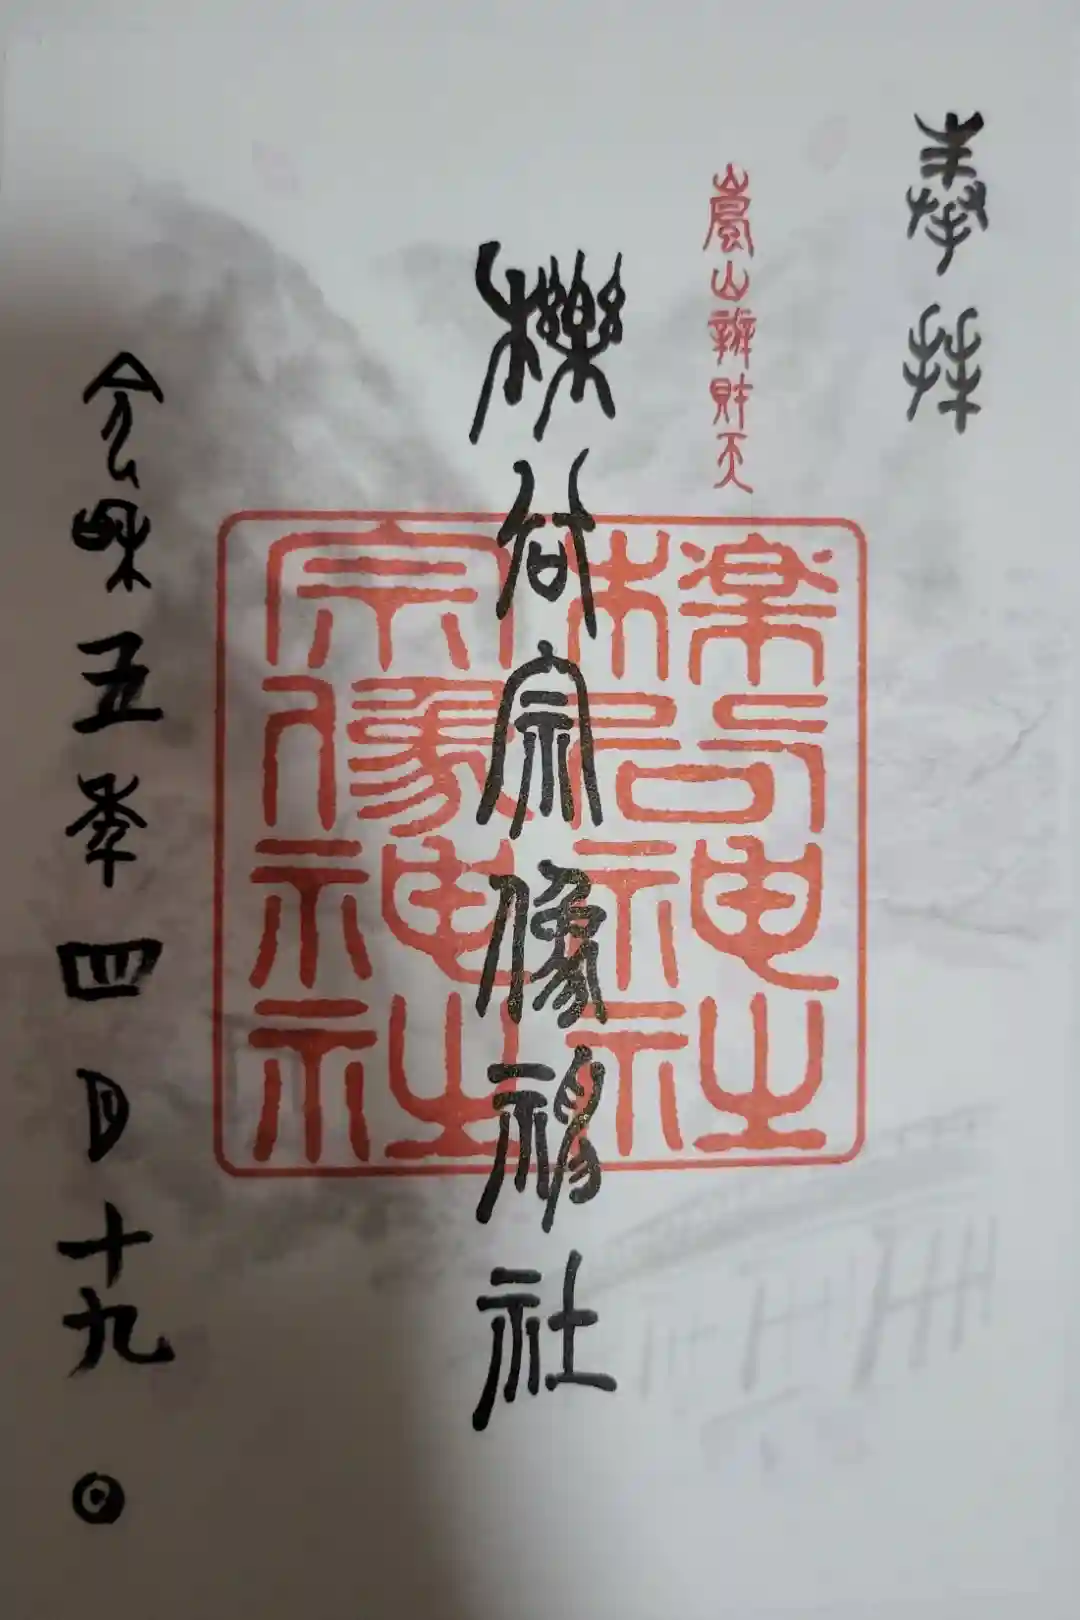 奉拝
嵐山辨財天
櫟谷宗像神社
櫟谷神社
宗像神社
令和五年四月十九日